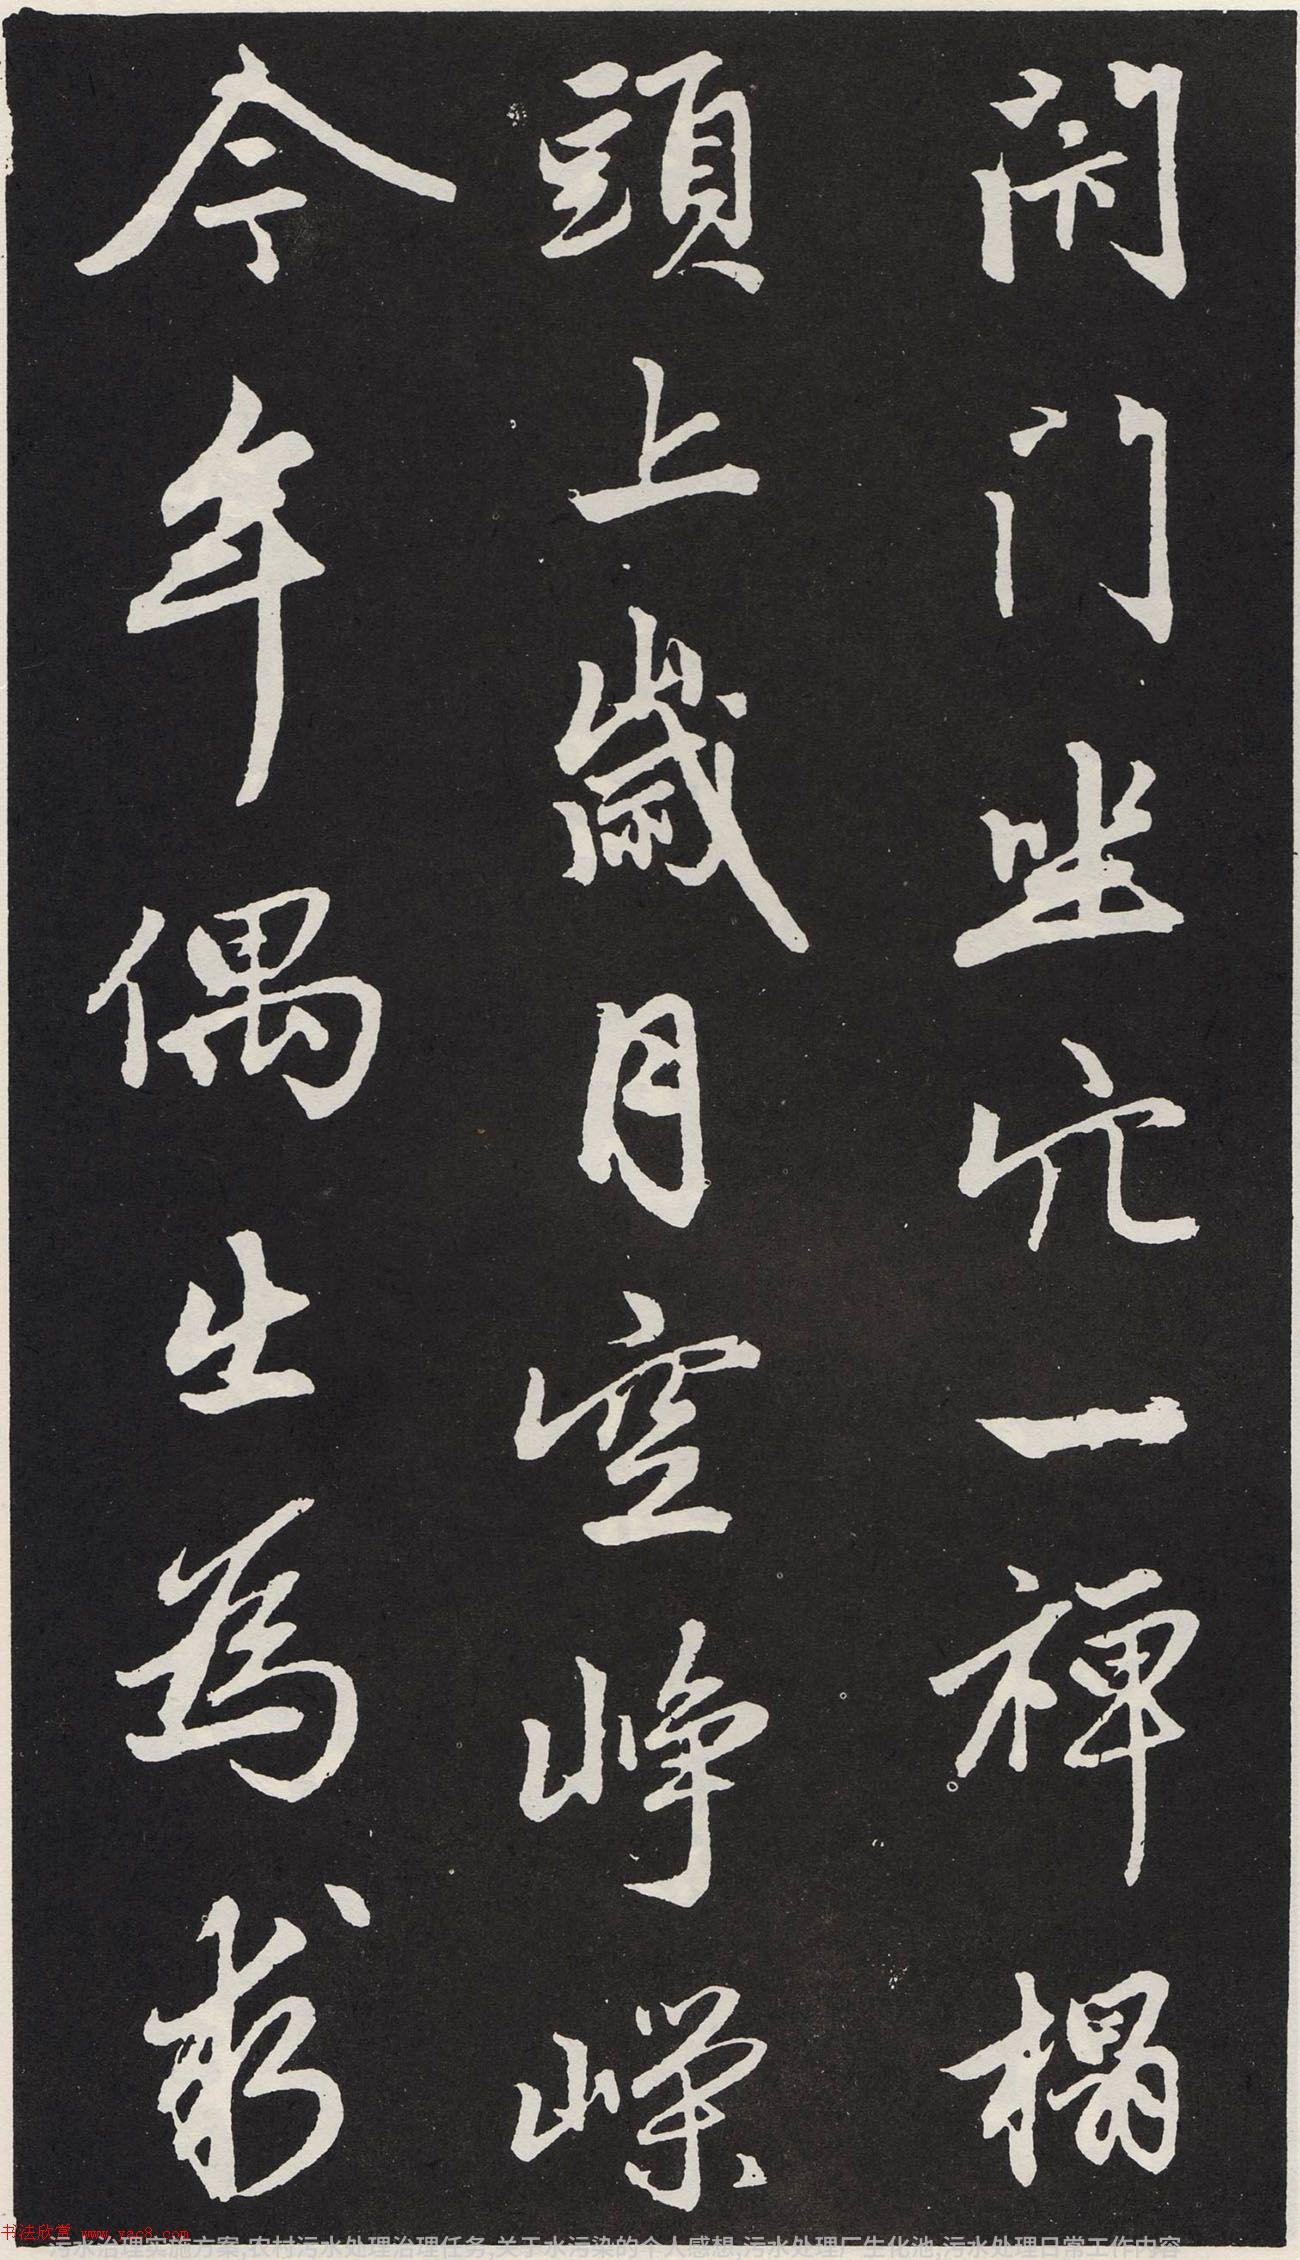 閇門坐穴一禪榻
頭上歲月空崢嶸
今年偶出為求
书法欣赏 www.yac8.com
污水治理实施方案,农村污水处理治理任务,关于水污染的个人感想,污水处理厂生化池,污水处理日常工作内容